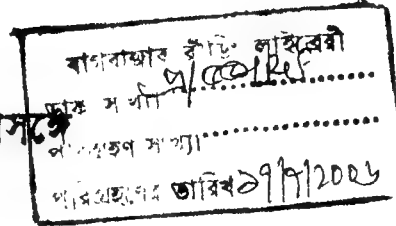 বাগবাজার রীডিং লাইব্রেরী
ডাক সংখ্যা
সঙ্গে
পরিগ্রহণ সংখ্যা
পরিগ্রহণের তারিখ ১৭/৭/2006